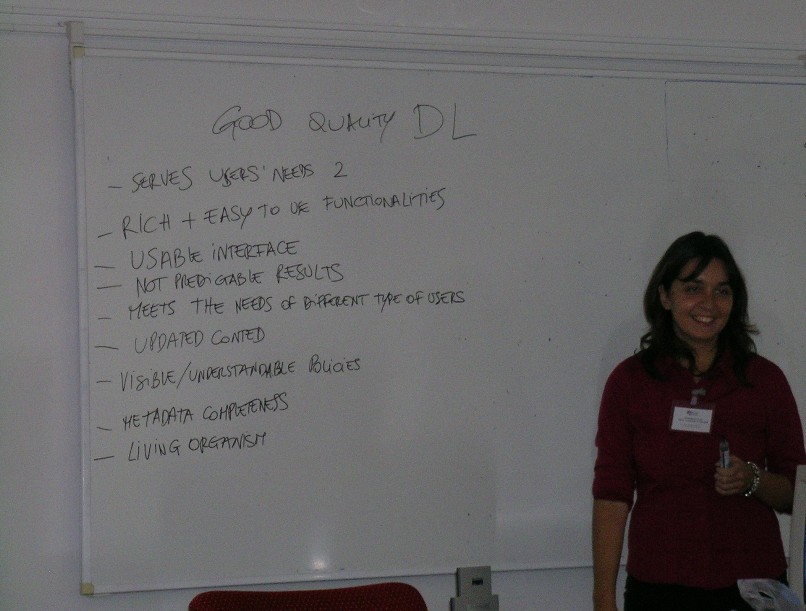 GOOD QUALITY DL
– SERVES USERS' NEEDS 2
– RICH + EASY TO USE FUNCTIONALITIES
– USABLE INTERFACE
– NOT PREDICTABLE RESULTS
– MEETS THE NEEDS OF DIFFERENT TYPE OF USERS
– UPDATED CONTED
– VISIBLE/UNDERSTANDABLE POLICIES
– METADATA COMPLETENESS
– LIVING ORGANISM